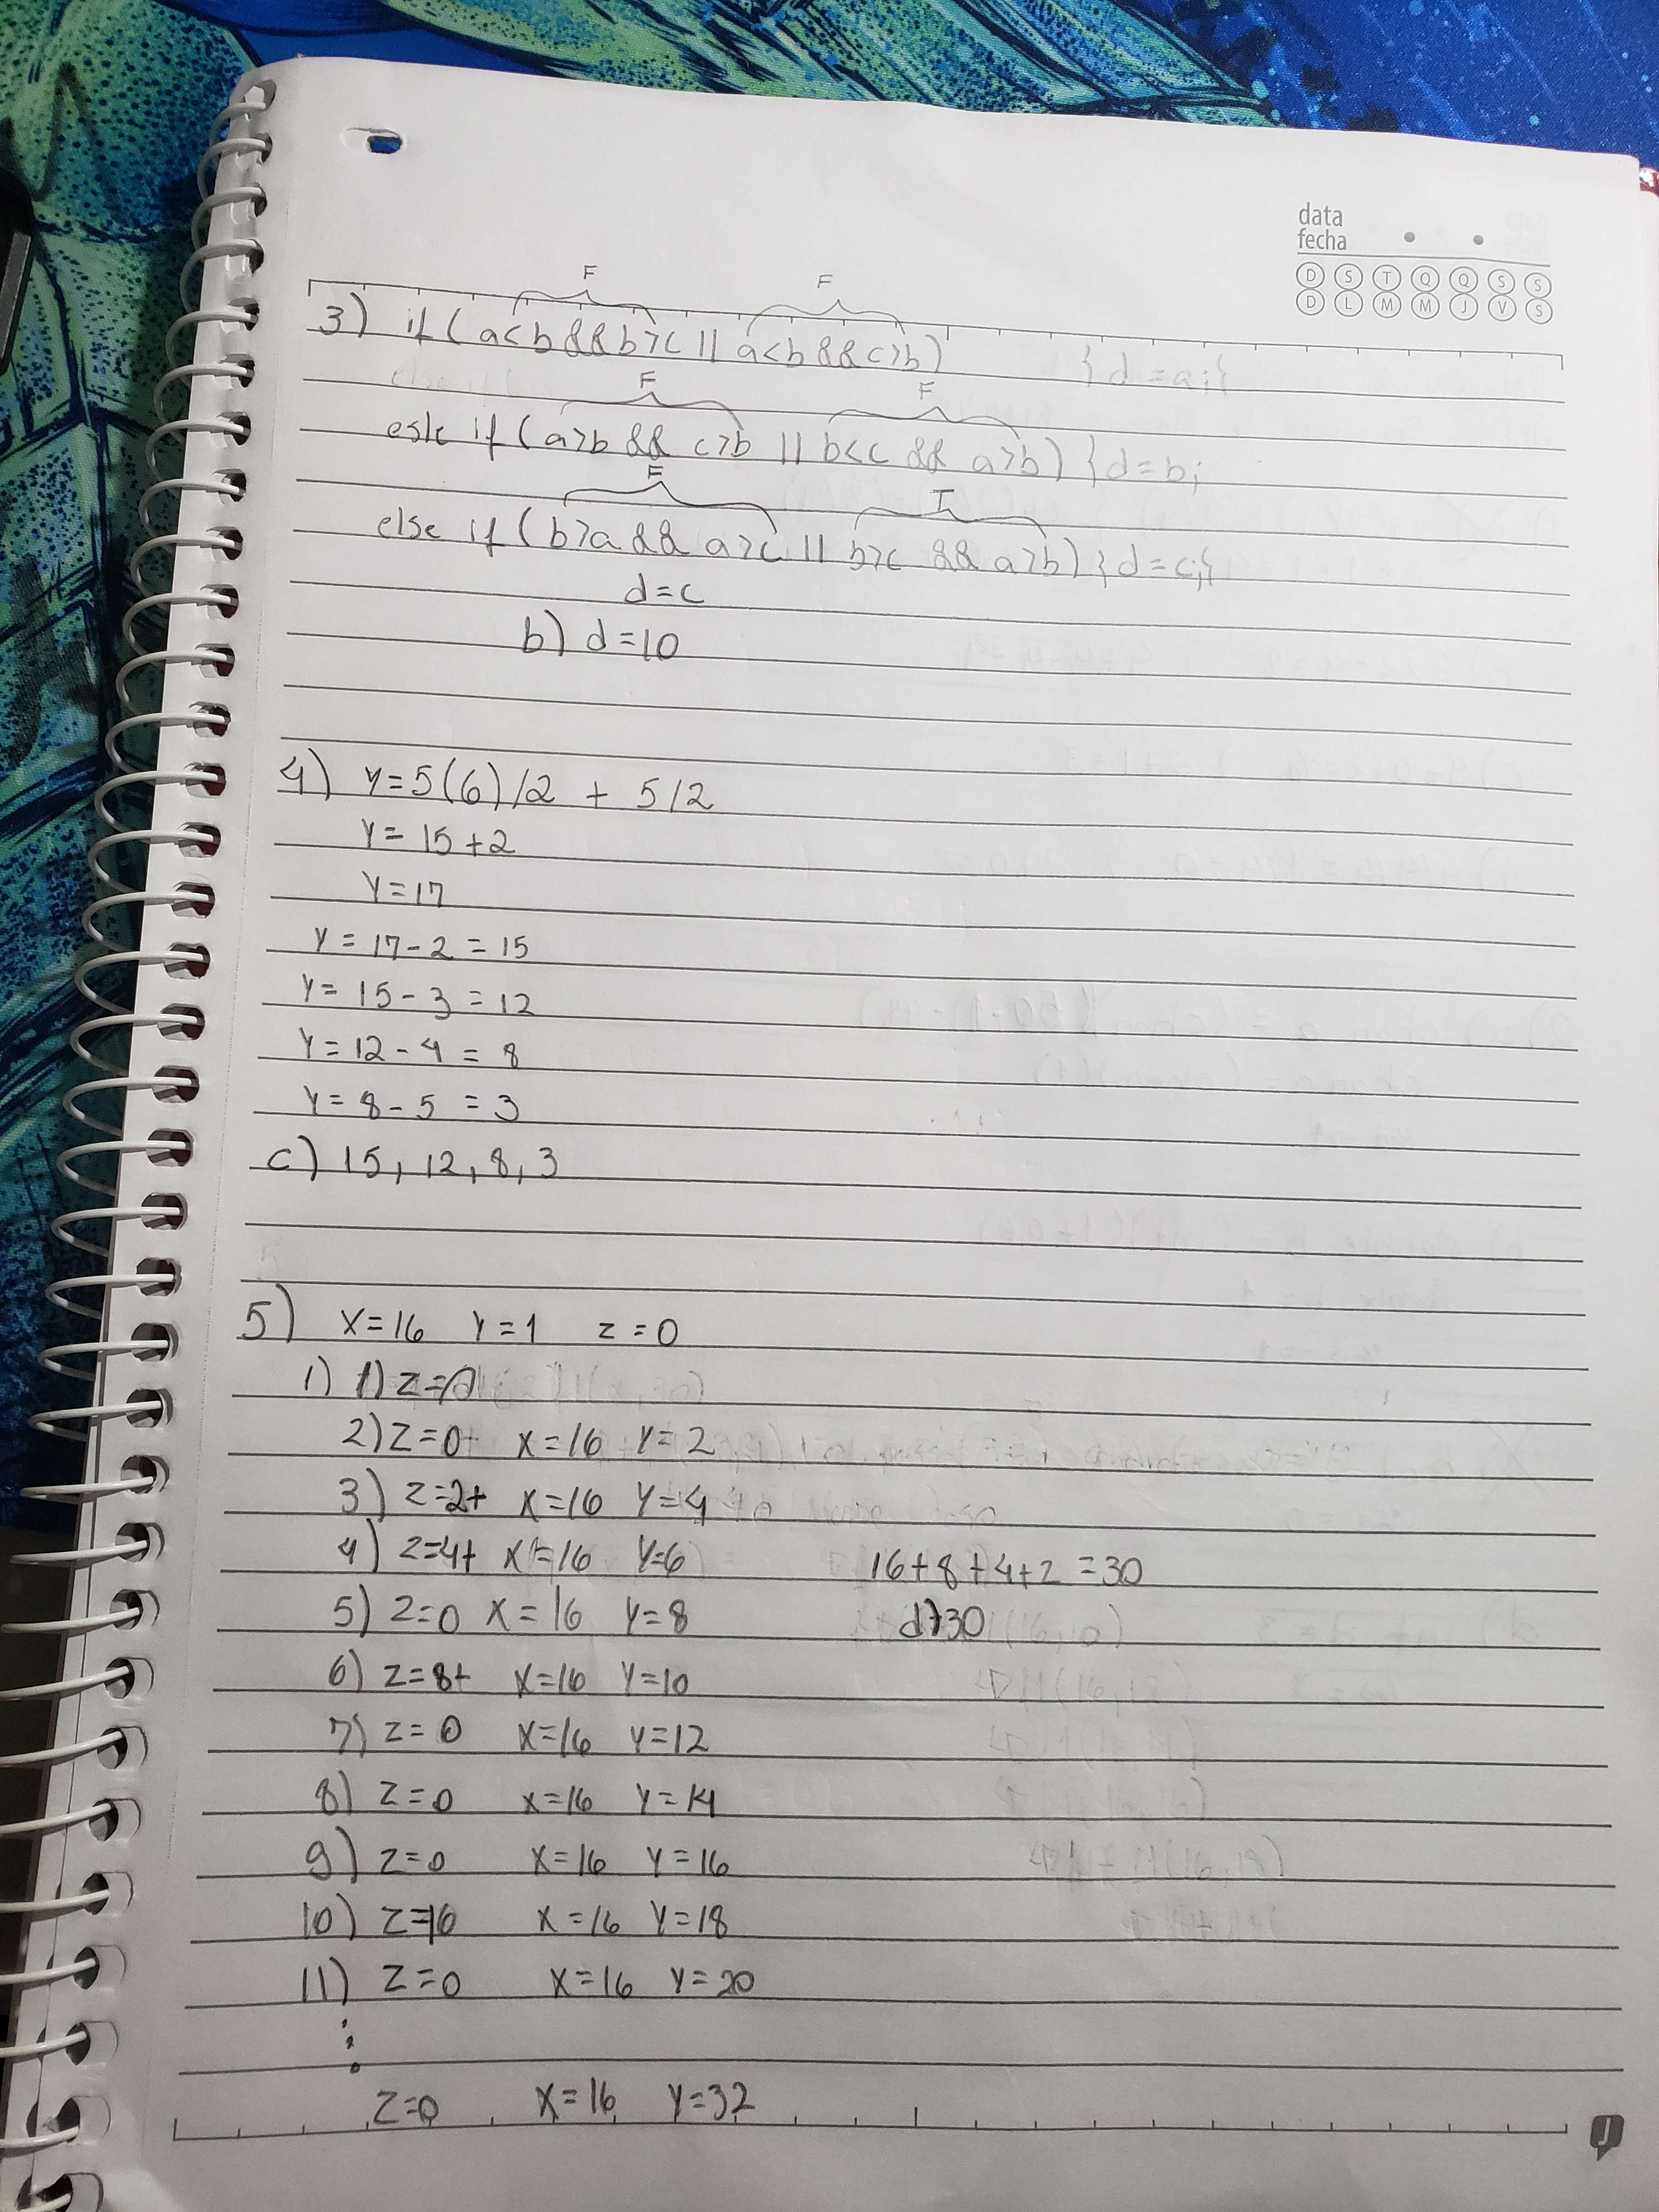 data
fecha
D S T Q Q S S
D L M M J V S
F F
3) if (a<b && b>c || a<b && c>b) } d = a; {
F F
eslc if (a>b && c>b || b<c && a>b) } d = b;
F T
else if (b>a && a>c || b>c && a>b) } d = c; {
d = c
b) d = 10
4) Y = 5(6)/2 + 5/2
Y = 15 + 2
Y = 17
Y = 17 - 2 = 15
Y = 15 - 3 = 12
Y = 12 - 4 = 8
Y = 8 - 5 = 3
c) 15, 12, 8, 3
5) X = 16 Y = 1 Z = 0
1) 1) Z = 0
2) Z = 0 X = 16 Y = 2
3) Z = 2+ X = 16 Y = 4
4) Z = 4+ X = 16 Y = 6 16 + 8 + 4 + 2 = 30
5) Z = 0 X = 16 Y = 8 d) 30
6) Z = 8+ X = 16 Y = 10
7) Z = 0 X = 16 Y = 12
8) Z = 0 X = 16 Y = 14
9) Z = 0 X = 16 Y = 16
10) Z = 16 X = 16 Y = 18
11) Z = 0 X = 16 Y = 20
Z = 0 X = 16 Y = 32